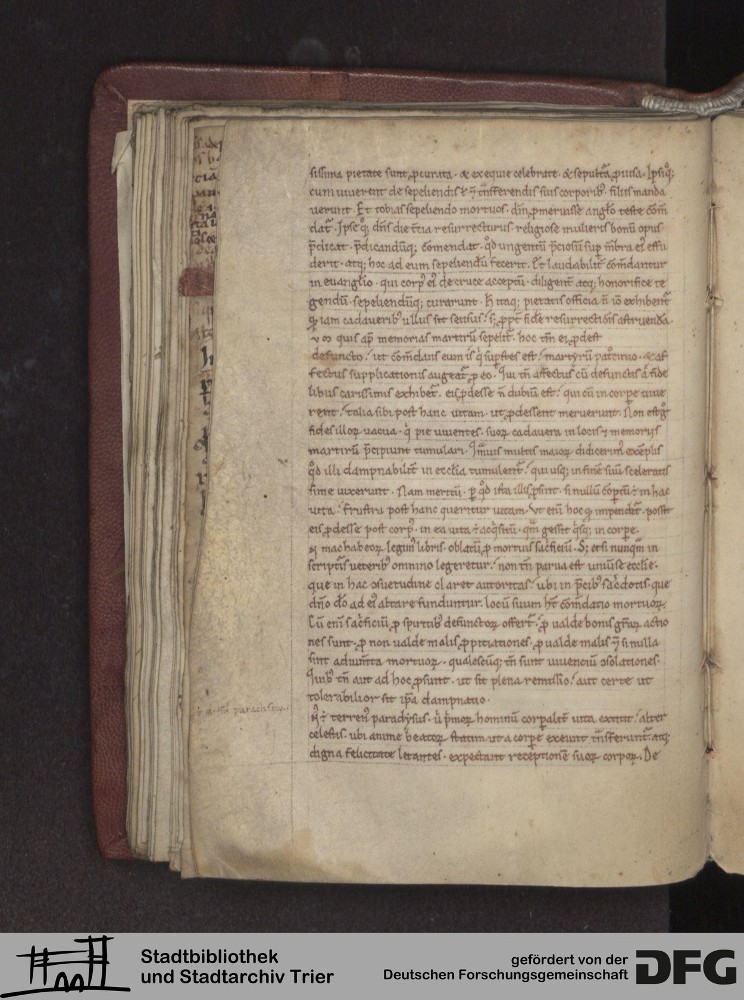 sissima pietate sunt ꝓcurata · & exequie celebrate · & sepultura ꝓuisa. Ipsiq;
cum uiuerent de sepeliendis ł transferendis suis corporib; filiis manda
uerunt. Et tobias sepeliendo mortuos · dm̄ ꝓmeruisse anglo teste com̄
dat̄. Ipse q̨ dn̄s die t̄cia resurrecturus · religiose mulieris bonū opus
p̄dicat · p̄dicandūq; comendat · qd̄ unguentū p̄ciosū sup m̄bra ei effu
derit · atq; hoc ad eum sepeliendū fecerit. Et laudabilit̄ com̄dantur
in euanglio · qui corp ei de cruce acceptū · diligent̄ atq; honorifice te
gendū · sepeliendūq; curarunt. itaq; pietatis officia n̄ ıō exhibent̄
iam cadauerib; ullus sit sensus · s; ꝓpt̄ fidē resurrectionis astruendā.
quis ap memorias martirū sepelit̄ · hoc tm̄ ei ꝓdest
defuncto · ut com̄dans eum is q̨ suꝑstes est · martyrū patrocinio · & af
fectus supplicationis augeat̄ ꝓ eo. Qui tn̄ affectus cū defunctis a fide
libus carissimis exhibet̄ · eis ꝓdesse n̄ dubiū est · qui cū in corpe uiue
rent · talia sibi post hanc uitam · ut ꝓdessent meruerunt. Non est g̊
fides illoꝝ uacua · q̨ pie uiuentes · suoꝝ cadauera in locis & memoriis
martirū p̄cipiunt tumulari. Quāuis multis maioꝝ didicerim exēplis
qd̄ illi dampnabilit̄ in ecclia tumulent̄ · qui usq; in finē suū sceleratis
sime uixerunt. Nam meritū · ꝑ qd̄ ista illis ꝓsint · si nullū in hac
uita · frustra post hanc queritur uitam. Ut enī hoc qd̄ impendit̄ · possit
eis ꝓdesse post corp · in ea uita ē acq̨situ · qm̄ gessit q̨sq; in corpe.
In machabeoꝝ legim libris · oblatū ꝓ mortuis sac̄ficiū. S; etsi nunqm̄ in
scripturis ueterib; omnino legeretur · non tn̄ parua est uniuerse ecclie ·
que in hac ꝯsuetudine claret autoritas · ubi in p̄cib; sac̄dotis · que
dn̄o dō ad ei altare funduntur · locū suum ht̄ com̄datio mortuoꝝ.
Cū enī sac̄ficiū ꝓ spiritib; defunctoꝝ offert̄ · ꝓ ualde bonis grāꝝ actio
nes sunt · ꝓ non ualde malis ꝓpitiationes · ꝓ ualde malis & si nulla
sint adiumta mortuoꝝ · qualescūq; tn̄ sunt uiuenciū ꝯsolationes.
Quib; tn̄ aut ad hoc ꝓsunt · ut sit plena remissio · aut certe ut
tolerabilior sit ipa dampnatio.
terren paradysus · ubi p̄moꝝ hominū corpalit̄ uita extitit · alter
celestis · ubi anime beatoꝝ statim ut a corpe exeunt transferunt̄ · atq;
digna felicitate letantes · expectant receptionē suoꝝ corpoꝝ. De
Stadtbibliothek
und Stadtarchiv Trier
gefördert von der
Deutschen Forschungsgemeinschaft
DFG